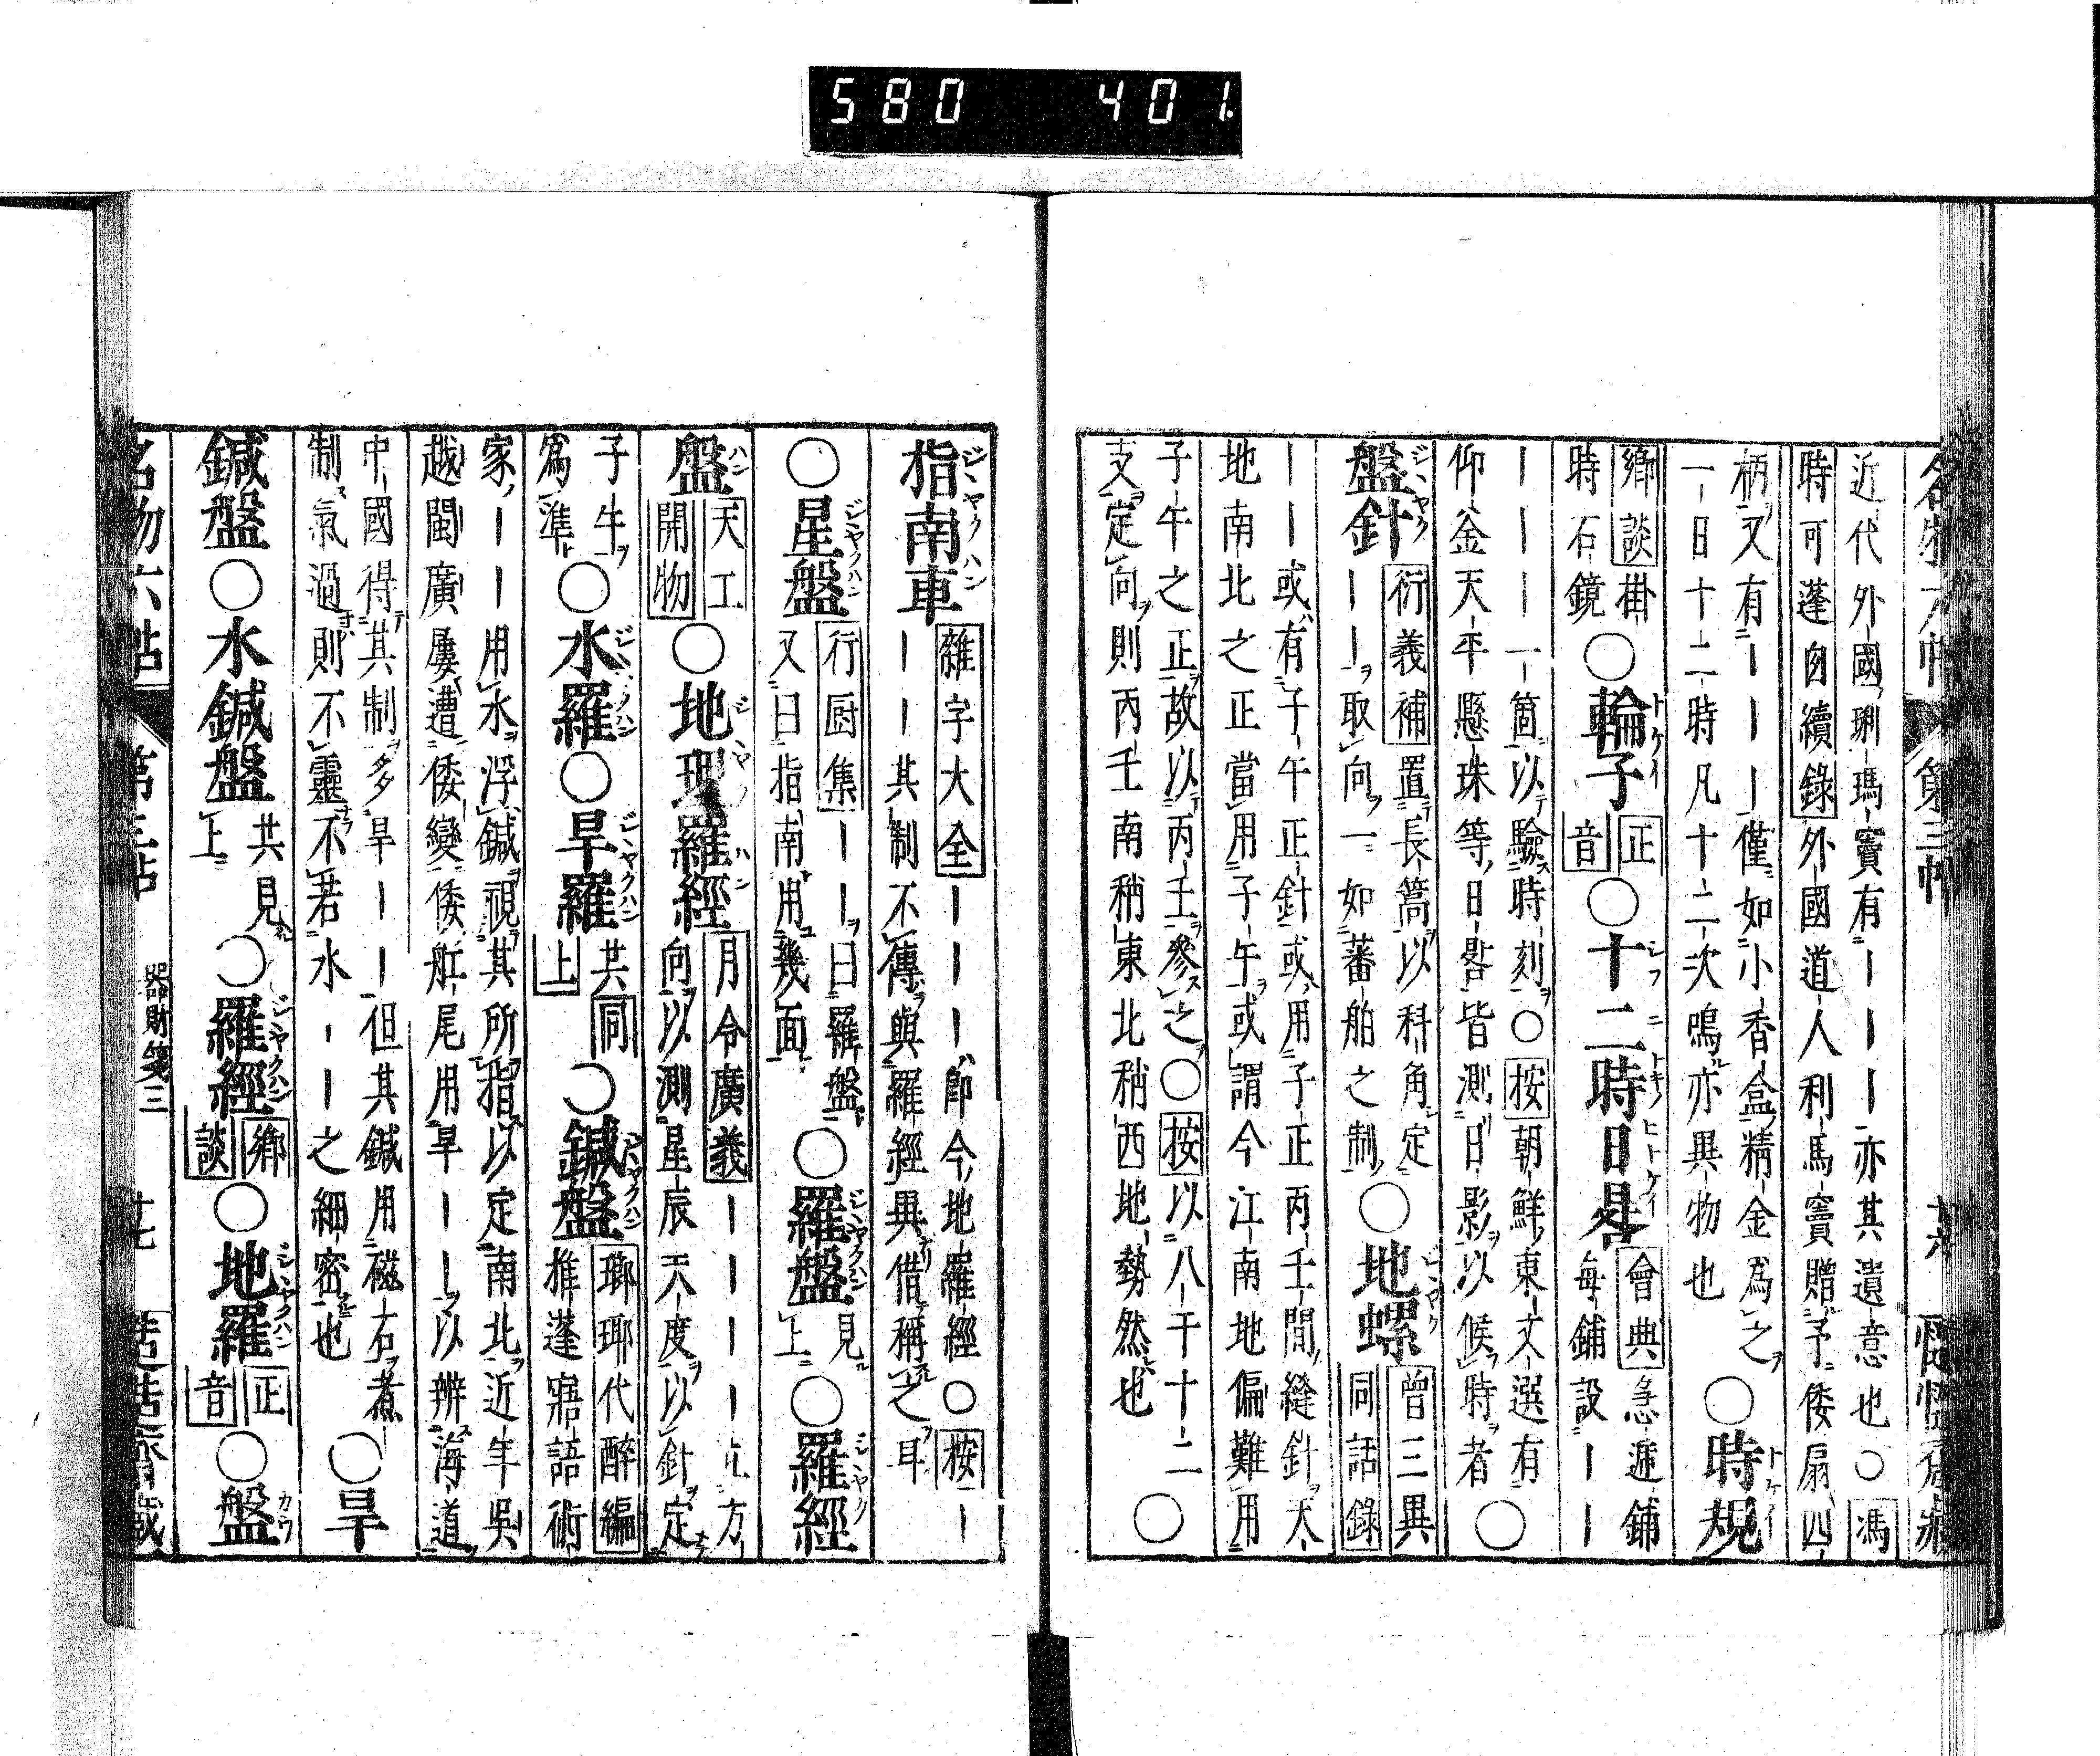 580 401
名物六帖 第三帖 十六
近代外國琍瑪竇有｜｜｜亦其遺意也○馮
時可蓬囱續錄外國道人利馬竇贈予倭扇四
柄又有｜｜｜｜僅如小香盒精金為之
一日十二時凡十二次鳴亦異物也
○時規
鄉談掛
時石鏡
○輪子
正
音
○十二時日晷
會典急遞鋪
每鋪設｜｜
｜｜｜｜一箇以驗時刻○按朝鮮東文選有
仰金天平懸珠等日晷皆測日影以候時者
○
盤針
衍義補置長篙以料角定
｜｜｜取向一如蕃舶之制
○地螺
曾三異
同話錄
｜｜｜或有子午正針或用子正丙壬間縫針天
地南北之正當用子午或謂今江南地偏難用
子午之正故以丙壬參之○按以八干十二
支定向則丙壬南稍東北稍西地勢然也
○
指南車
雜字大全｜｜｜即今地羅經○按｜
｜｜其制不傳與羅經異借稱之耳
○星盤
行厨集｜｜曰羅盤
又曰指南用幾面
○羅盤
見
上
○羅經
盤
天工
開物
○地理羅經
月令廣義｜｜｜｜方
向以測星辰天度以針定
子午
為準
○水羅○旱羅
共同
上
○鍼盤
瑯琊代醉編
推蓬寤語術
家｜｜用水浮鍼視其所指以定南北近年吳
越閩廣屢遭倭變倭舡尾用旱｜｜以辨海道
中國得其制多旱｜｜但其鍼用磁石煮
制氣過則不靈不若水｜｜之細密也
○旱
鍼盤○水鍼盤
共見
上
○羅經
鄉
談
○地羅
正
音
○盤
名物六帖 第三帖 器財箋三 十七